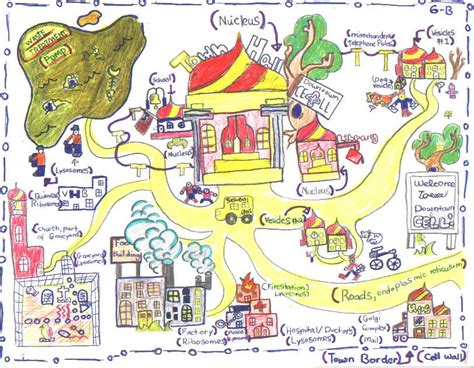 6-B
(Nucleus)
WASTE
TREATMENT
DUMP
Town Hall
(mitochondria)
Telephone Poles)
(Vesicles
#1)
(School)
Downtown
CELL
(Nucleus)
Library
(Nucleus)
(Lysosomes)
Ribosomes)
VHB
Welcome
To
Downtown
CELL!
School
(Vesicles #2)
(Church, part of
Graveyard)
Lysosomes)
(Graveyard)
Lysosomes)
Food
Building
(Roads, endoplasmic reticulum)
(Firestation)
Lysosomes)
(Factory)
Ribosomes)
(Hospital/Doctors)
Lysosomes)
(Golgi
Complex)
Mail)
(Town Border)
(Cell wall)